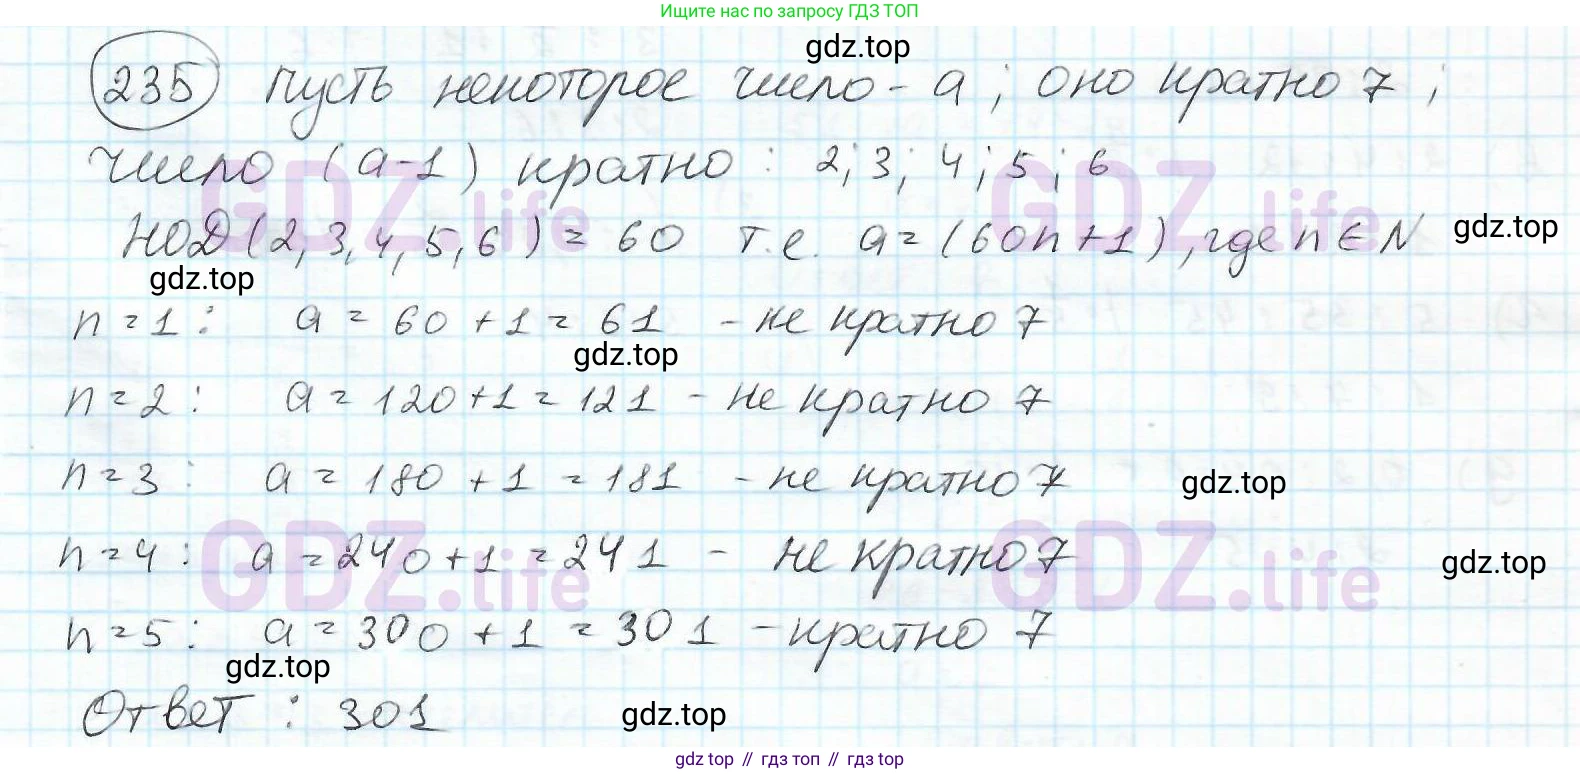 Ищите нас по запросу ГДЗ ТОП
gdz.top
235 Пусть некоторое число - а ; оно кратно 7 ;
число (а-1) кратно : 2; 3; 4; 5; 6
GDZ.life GDZ.life
НОД(2,3,4,5,6) = 60 т.е. а = (60n+1), где n ∈ N
gdz.top
gdz.top
n = 1 : а = 60 + 1 = 61 - не кратно 7
gdz.top
n = 2 : а = 120 + 1 = 121 - не кратно 7
n = 3 : а = 180 + 1 = 181 - не кратно 7
gdz.top
GDZ.life GDZ.life
n = 4 : а = 240 + 1 = 241 - не кратно 7
gdz.top
n = 5 : а = 300 + 1 = 301 - кратно 7
gdz.top
Ответ : 301
gdz.top
gdz top // гдз топ // gdz top